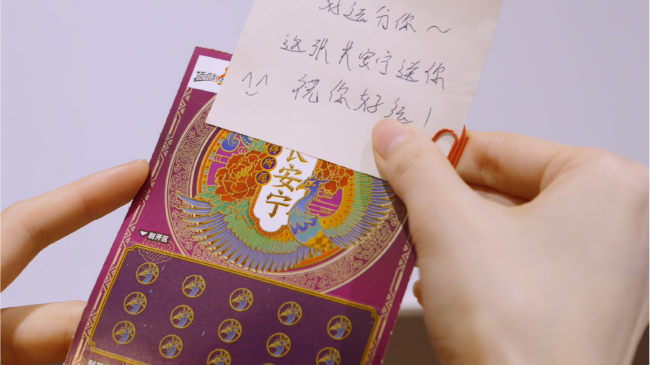 好运分你～
这张长安宁送你
祝你好运！
长安宁
刮开区